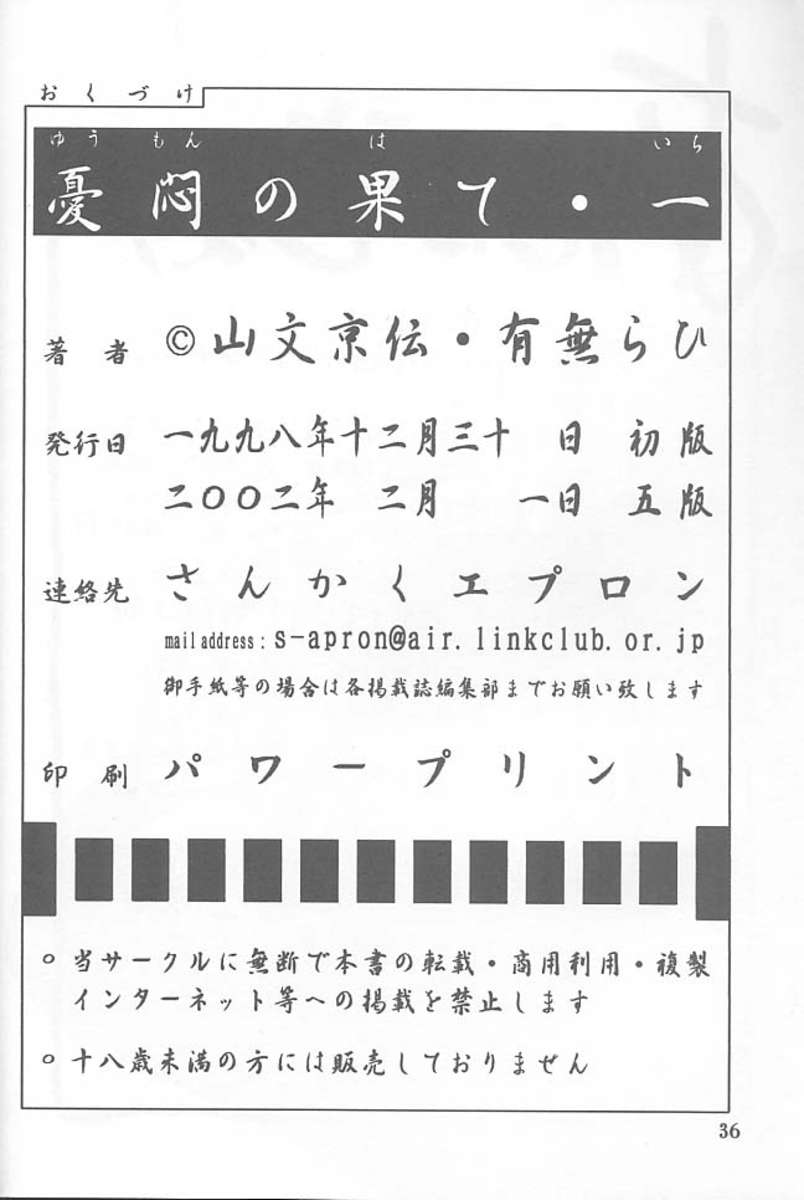 おくづけ
ゆうもん は いち
憂悶の果て・一
著者 ©山文京伝・有無らひ
発行日 一九九八年十二月三十 日 初版
二〇〇二年 二月 一日 五版
連絡先 さんかくエプロン
mail address : s-apron@air.linkclub.or.jp
御手紙等の場合は各掲載誌編集部までお願い致します
印刷 パワープリント
○ 当サークルに無断で本書の転載・商用利用・複製
インターネット等への掲載を禁止します
○ 十八歳未満の方には販売しておりません
36